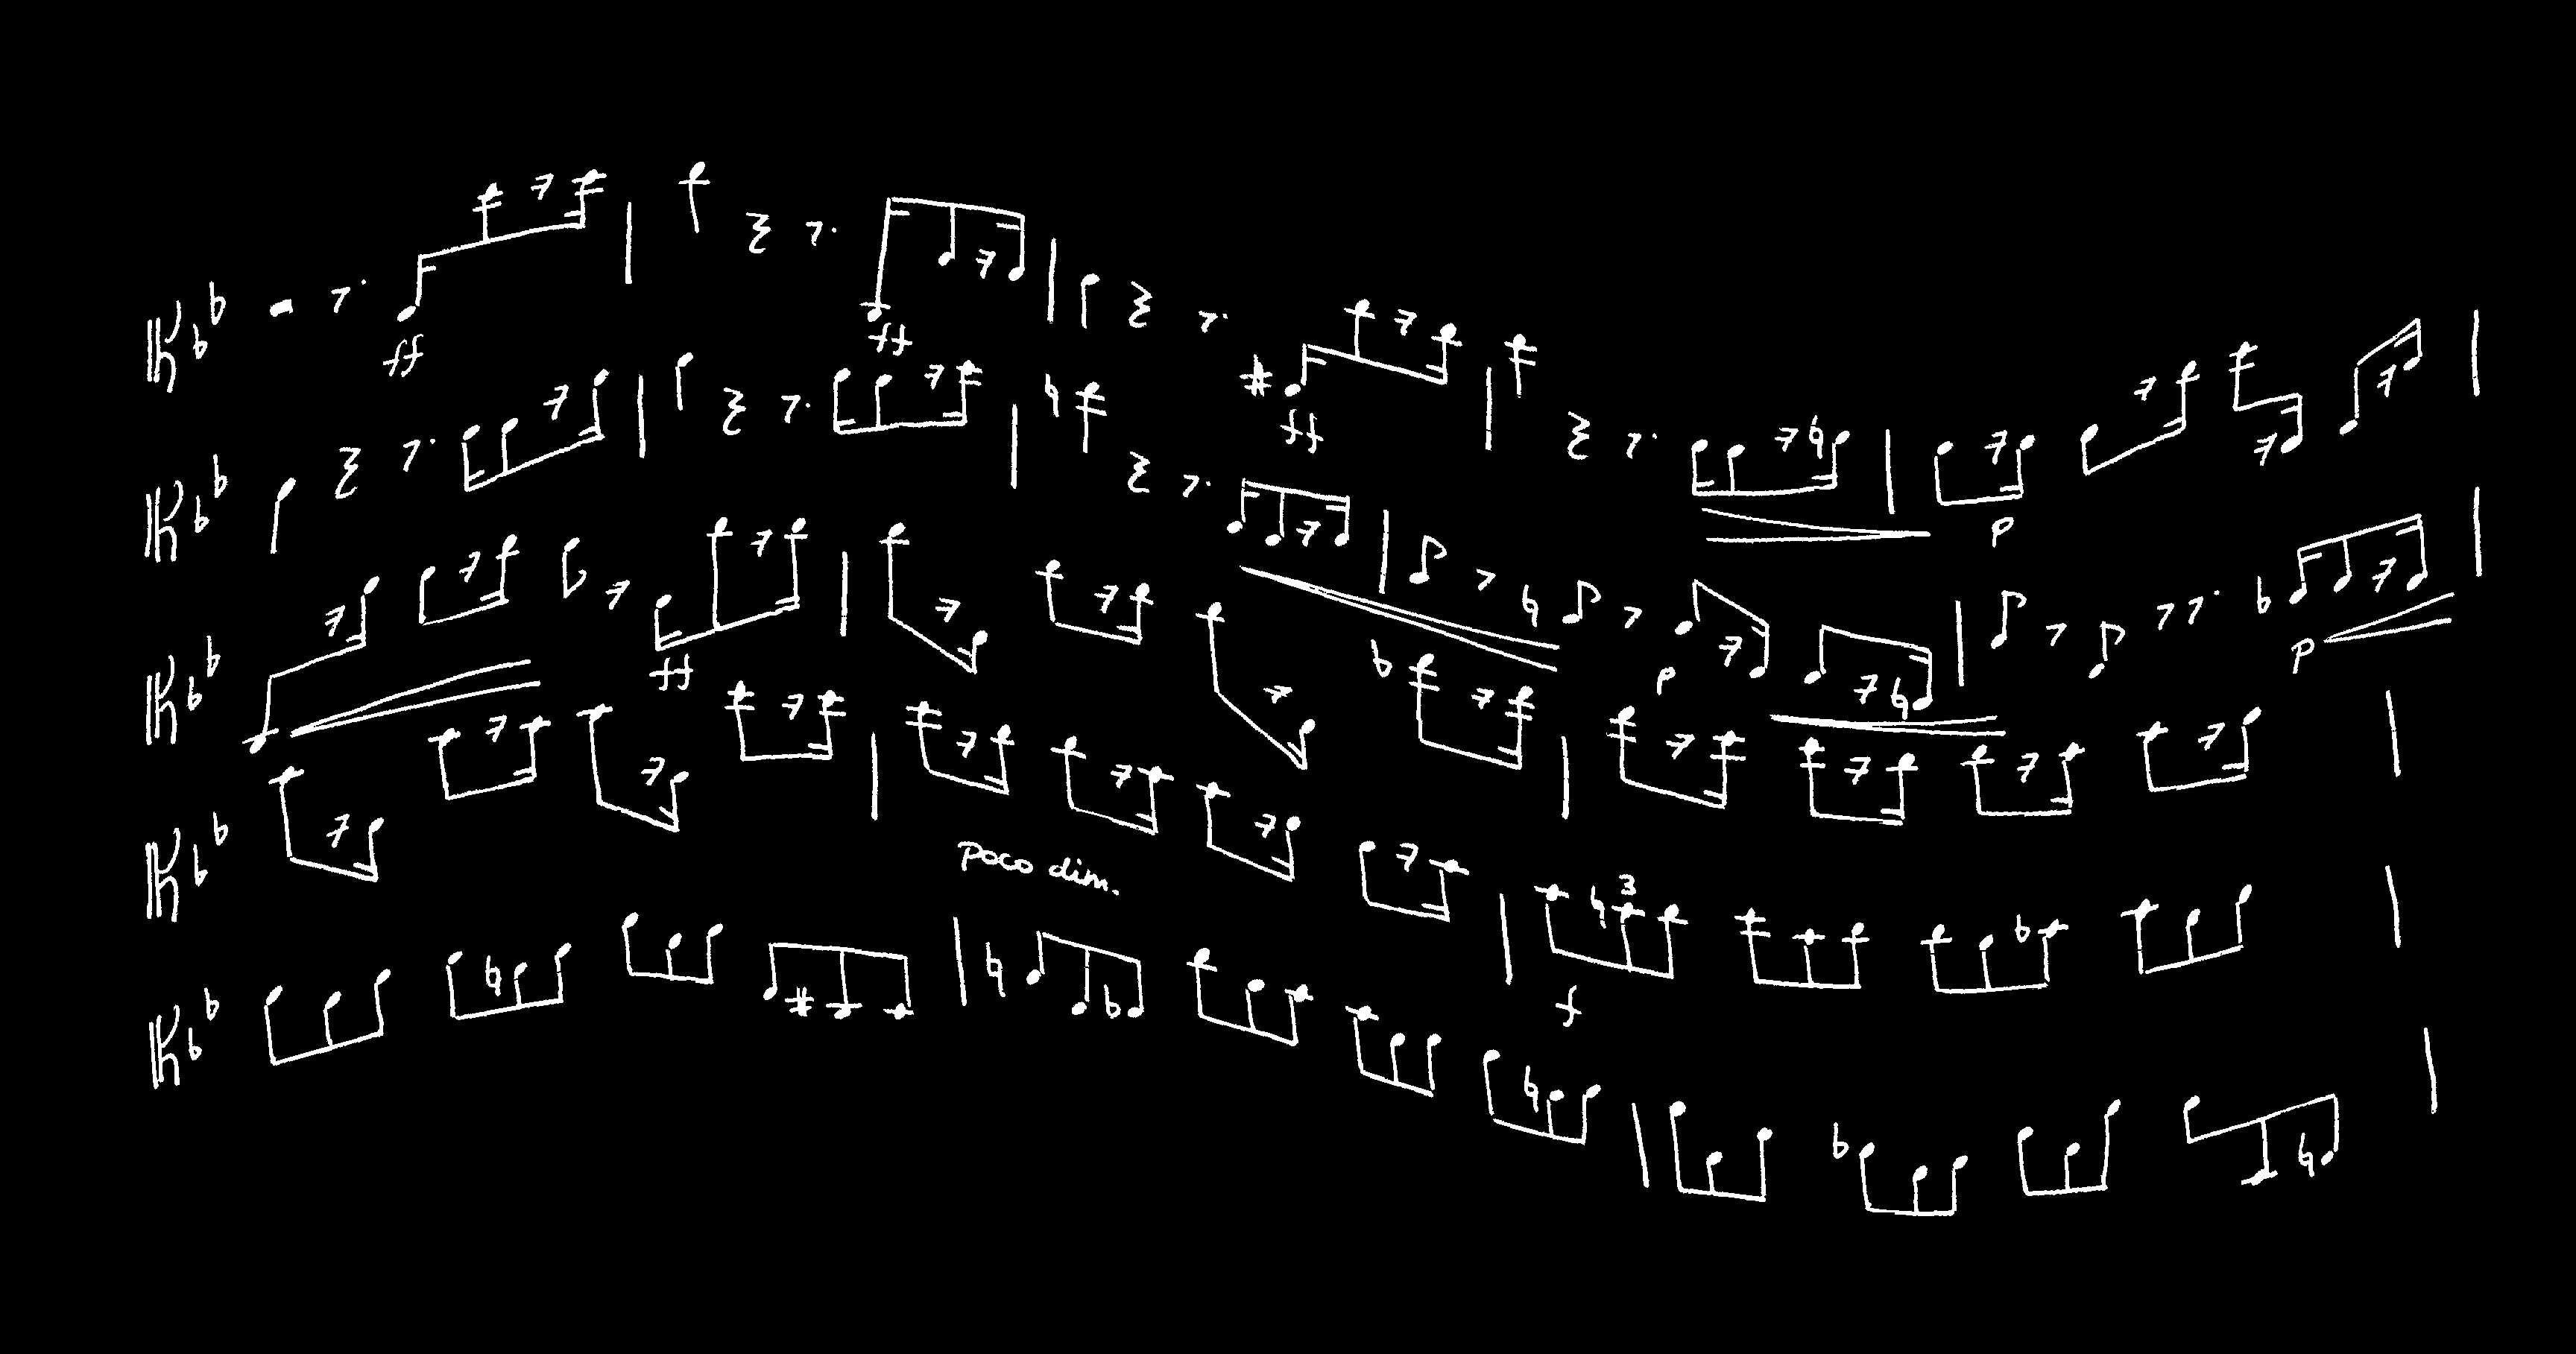 ff
ff
ff
p
ff
p
p
poco dim.
3
f